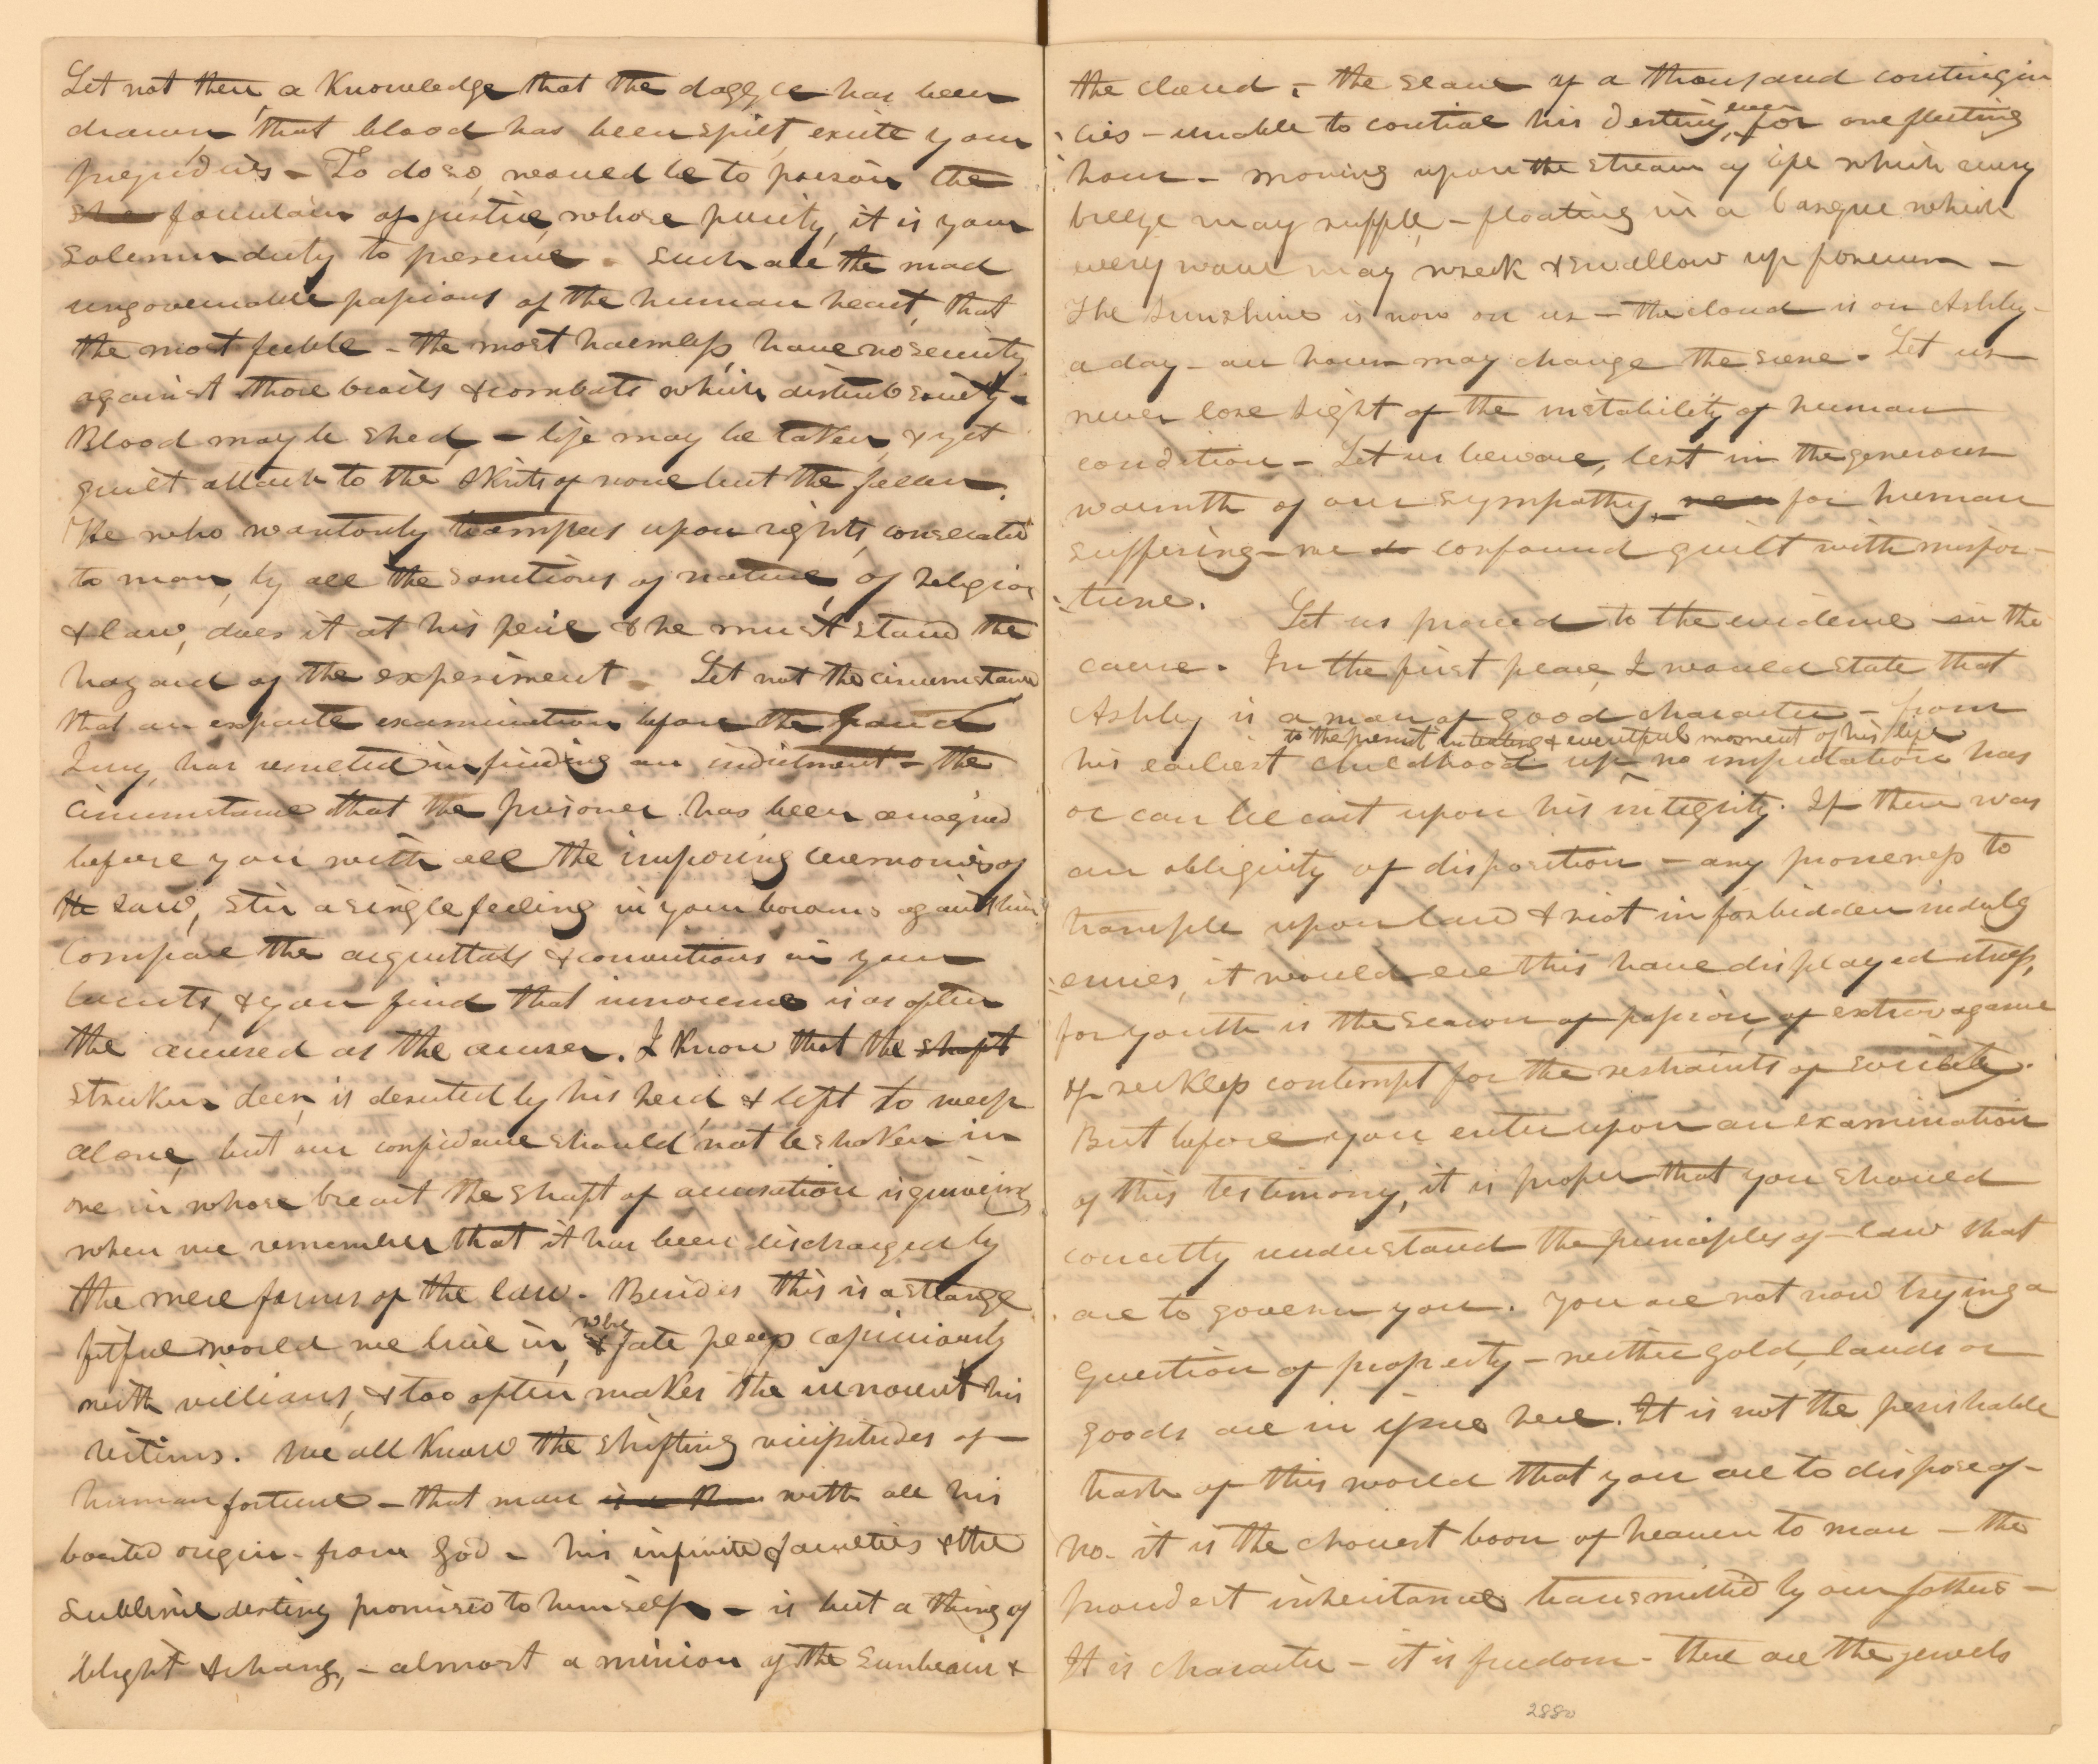 Let not then, a Knowledge that the dagger has been
drawn, that blood has been spilt, excite your
prejudices – To do so, would be to poison the
she fountain of justice, whose purity, it is your
solemn duty to preserve. Such are the mad
ungovernable passions of the human heart, that
the most feeble – the most harmless, have no security
against those broils & combats which disturb society –
Blood may be shed, – life may be taken, & yet
guilt attach to the skirts of none but the fallen.
He who wantonly tramples upon rights, consecrated
to man, by all the sanctions of nature, of religion
& law, does it at his peril & he must stand the
hazard of the experiment – Let not the circumstance
that an exparte examination before the Grand
Jury, has resulted in finding an indictment – the
circumstance that the prisoner has been arraigned
before you with all the imposing ceremonies of
the law, stir a single feeling in your bosoms against him
Compare the acquittals & convictions in your
Courts, & you find that innocence is as often
the accused as the accuser. I Know that the shaft
stricken deer, is deserted by his herd & left to weep
alone, but our confidence should not be shaken in
one in whose breast the shaft of accusation is quivering
when we remember that it has been discharged by
the mere forms of the law. Besides this is a strange
fitful world we live in, & where fate plays capriciously
with villians, & too often makes the innocent his
victims. We all Know the shifting vicissitudes of
human fortune – that man is a with all his
boasted origin – from God – his infinite faculties & the
sublime destiny promised to himself – is but a thing of
blight & change, – almost a minion of the Sunbeam &
the cloud, – the slave of a thousand contingen
cies – unable to control his Destiny, even for one fleeting
hour – moving upon the stream of life which every
breeze may ruffle, – floating in a barque which
every wave may wreck & swallow up forever –
The Sunshine is now on us – the cloud is on Ashby –
a day – an hour may change the scene. Let us
never lose sight of the instability of human
condition – Let us beware, lest in the generous
warmth of our sympathy, for human
suffering – we do confound guilt with misfor-
tune. Let us proceed to the evidence in the
cause. In the first place, I would state that
Ashby is a man of good character – from
to the present interesting & eventful moment of his life
his earliest childhood up, no imputation has
or can be cast upon his integrity. If there was
an obliquity of disposition – any proneness to
trample upon law & riot in forbidden indulg
encies, it would ere this have displayed itself,
for youth is the season of passion, of extravagance
& of reckless contempt for the restraints of society.
But before you enter upon an examination
of this testimony, it is proper that you should
correctly understand the principles of law that
are to govern you. You are not now trying a
question of property – neither gold, lands or
goods are in issue here. It is not the perishable
trash of this world that you are to dispose of –
No – it is the choicest boon of heaven to man – the
proudest inheritance transmitted by our fathers –
It is character – it is freedom – these are the jewels
2880